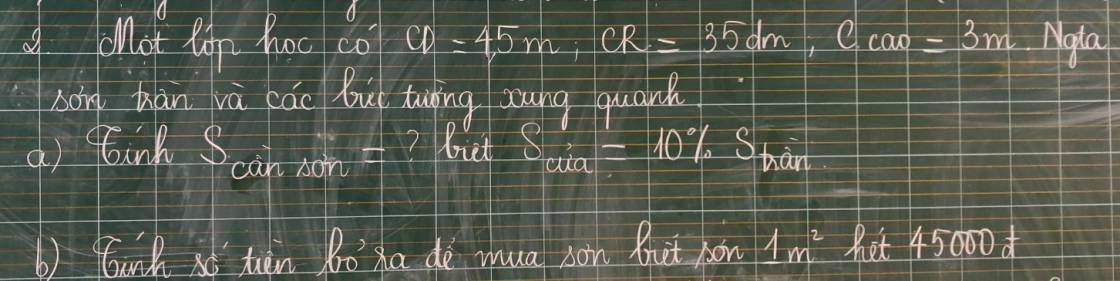 2. Một lớp học có CD = 4,5 m ; CR = 35 dm , C cao = 3 m . Ngta
sơn trần và các bức tường xung quanh.
a) Tính S cần sơn = ? biết S cửa = 10% S trần.
b) Tính số tiền bỏ ra để mua sơn biết sơn 1 m² hết 45000 đ